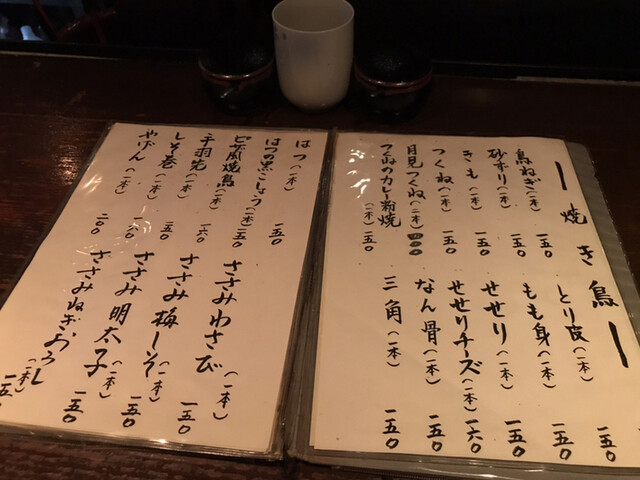 焼き鳥
鳥ねぎ（一本） 一五〇
砂ずり（一本） 一五〇
きも（一本） 一五〇
つくね（一本） 一五〇
月見つくね（二本） 三〇〇
つくねのカレー粉焼（一本） 一五〇
一五〇
とり皮（一本） 一五〇
もも身（一本） 一五〇
せせり（一本） 一五〇
せせりチーズ（一本） 一六〇
なん骨（一本） 一五〇
三角（一本） 一五〇
はつ（一本） 一五〇
はつの黒こしょう（一本） 一五〇
ピザ風焼鳥（一本） 一五〇
手羽先（一本） 一六〇
しそ巻（一本） 一五〇
やげん（一本） 二〇〇
ささみわさび（一本） 一五〇
ささみ梅しそ（一本） 一五〇
ささみ明太子（一本） 一五〇
ささみねぎおろし（一本） 一五